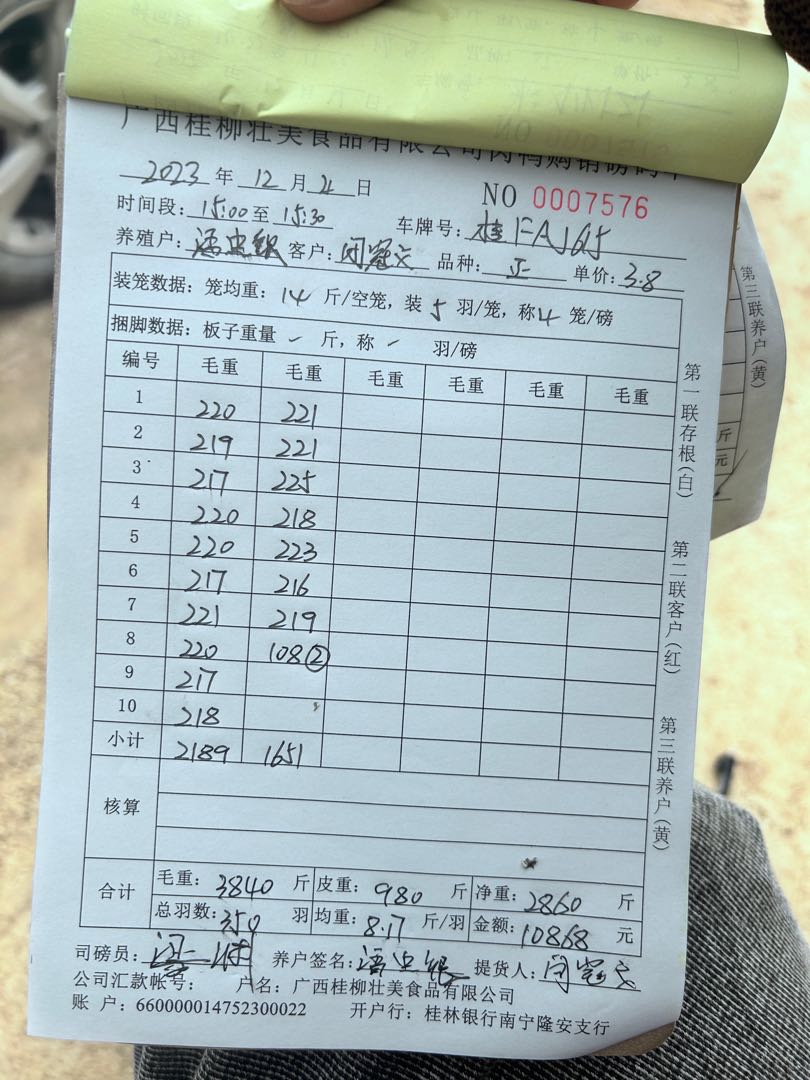 广西桂柳壮美食品有限公司肉鸭购销磅码单
2023 年 12 月 21 日
NO 0007576
时间段: 15:00 至 15:30 车牌号: 桂FAJ65
养殖户: 客户: 闭冠文 品种: 正 单价: 3.8
装笼数据: 笼均重: 14 斤/空笼, 装 5 羽/笼, 称 4 笼/磅
捆脚数据: 板子重量 斤, 称 羽/磅
编号 毛重 毛重 毛重 毛重 毛重 毛重
1 220 221
2 219 221
3 217 225
4 220 218
5 220 223
6 217 216
7 221 219
8 220 108②
9 217
10 218
小计 2189 1651
核算
合计 毛重: 3840 斤 皮重: 980 斤 净重: 2860 斤
总羽数: 350 羽 均重: 8.17 斤/羽 金额: 10868 元
司磅员: 养户签名: 提货人: 闭冠文
公司汇款帐号: 户名: 广西桂柳壮美食品有限公司
账 户: 660000014752300022 开户行: 桂林银行南宁隆安支行
第一联存根(白)
第二联客户(红)
第三联养户(黄)
第三联养户(黄)
斤
元